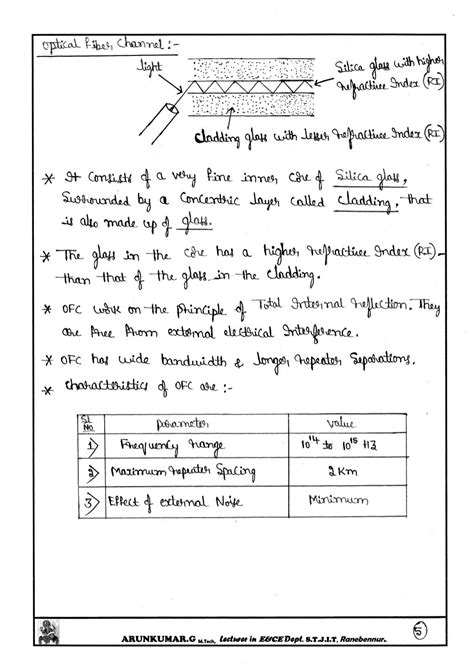 Optical Fiber Channel :-
light
Silica glass with higher
refractive Index (RI)
cladding glass with lesser refractive Index (RI)
* It consists of a very fine inner core of Silica glass,
Surrounded by a concentric layer called cladding, that
is also made up of glass.
* The glass in the core has a higher refractive Index (RI)
than that of the glass in the cladding.
* OFC work on the principle of Total Internal reflection. They
are free from external electrical Interference.
* OFC has wide bandwidth & longer repeater Separations.
* Characteristics of OFC are :-
Sl No. Parameter Value
1) Frequency range 10^14 to 10^15 Hz
2) Maximum repeater Spacing 2 Km
3) Effect of external Noise Minimum
ARUNKUMAR.G M.Tech, Lecturer in E&CE Dept. S.T.J.I.T, Ranebennur.
5